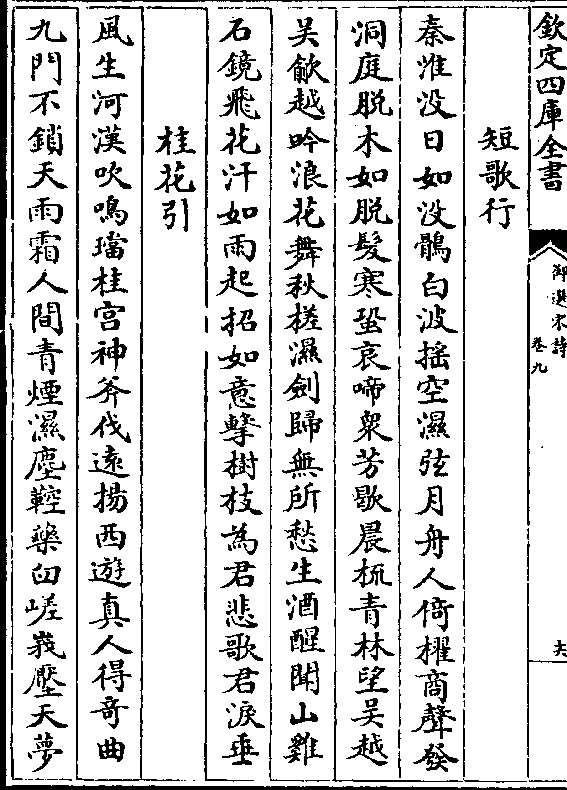 欽定四庫全書
御選宋詩
卷九
短歌行
秦淮没日如没鶻白波揺空濕弦月舟人倚櫂商聲發
洞庭脱木如脱髪寒蛩哀啼衆芳歇晨梳青林望吳越
吳歈越吟浪花舞秋槎濕劍歸無所愁生酒醒聞山雞
石鏡飛花汗如雨起招如意擊樹枝為君悲歌君淚垂
桂花引
風生河漢吹鳴璫桂宫神斧伐遠揚西遊真人得竒曲
九門不鎖天雨霜人間青煙濕塵鞚藥臼嵯峩壓天夢